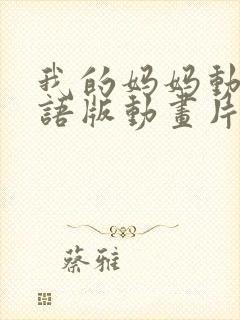 我的妈妈動
語版動畫片
蔡雅